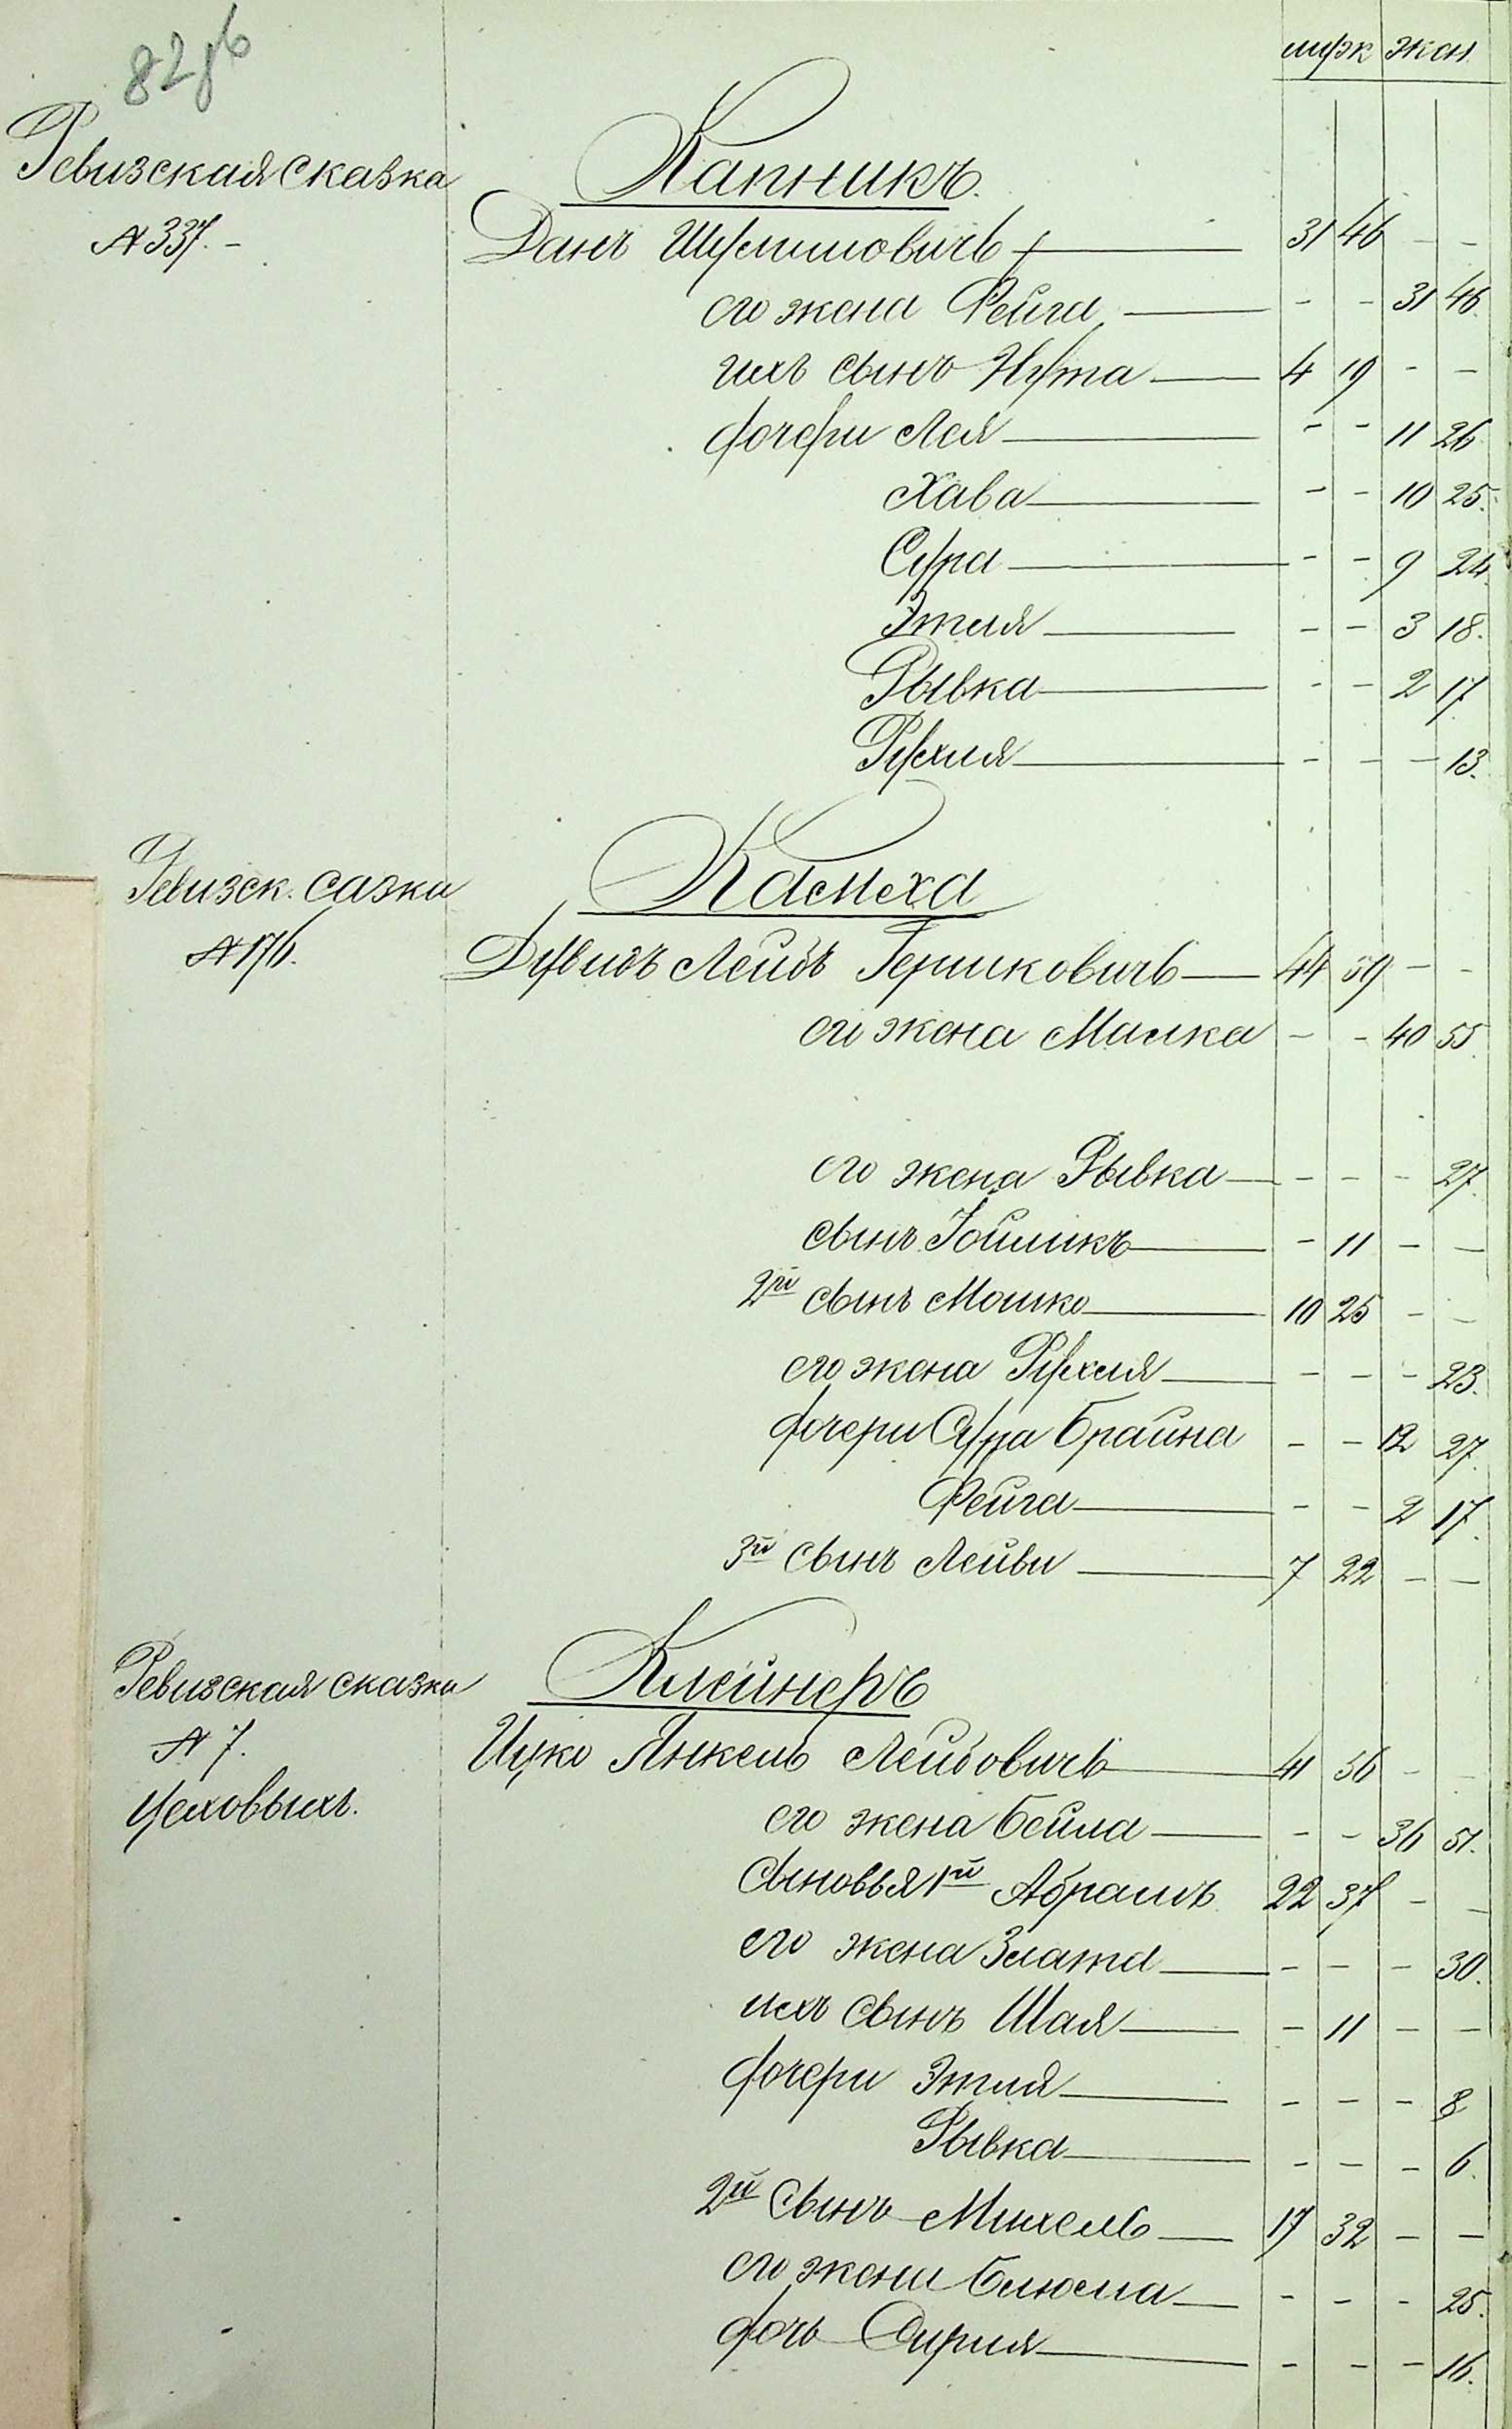 82об
муж жен.
Ревизская сказка
№ 337.
Капникъ.
Данъ Шулимовичъ 31 46 - -
его жена Фейга - - 31 46.
ихъ сынъ Нута 4 19 - -
дочери Лея - - 11 26
Хава - - 10 25.
Сура - - 9 24.
Этля - - 3 18.
Рывка - - 2 17.
Рухля - - - 13.
Ревизск. сазка
№ 176.
Касмеха
Дувидъ Лейбъ Гершковичъ 44 59 - -
его жена Малка - - 40 55.
его жена Рывка - - - 27.
сынъ Іойликъ - 11 - -
2й сынъ Мошко 10 25 - -
его жена Рухля - - - 23.
дочери Сура Брайна - - 12 27.
Фейга - - 2 17.
3й сынъ Лейви 7 22 - -
Ревизская сказка
№ 7.
цеховыхъ.
Клейнеръ
Ицко Янкель Лейбовичъ 41 56 - -
его жена Бейла - - 36 51.
сыновья 1й Абрамъ 22 37 - -
его жена Злата - - - 30.
ихъ сынъ Шая - 11 - -
дочери Этля - - - 8
Рывка - - - 6.
2й сынъ Михель 17 32 - -
его жена Блюма - - - 25.
дочь - - - 16.